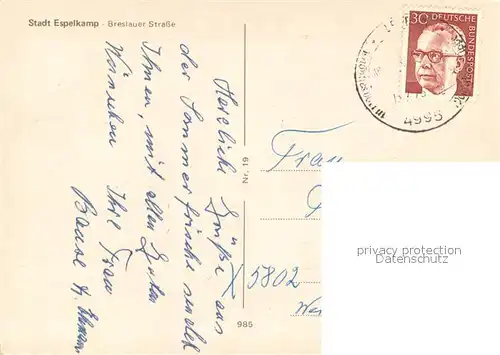 Stadt Espelkamp - Breslauer Straße
Herzliche Grüße aus
der Sommerfrische sendet
Ihnen, mit allen Guten
Wünschen Ihre Frau
Nr. 19
985
30 DEUTSCHE BUNDESPOST
4995
Frau
X 5802
privacy protection
Datenschutz